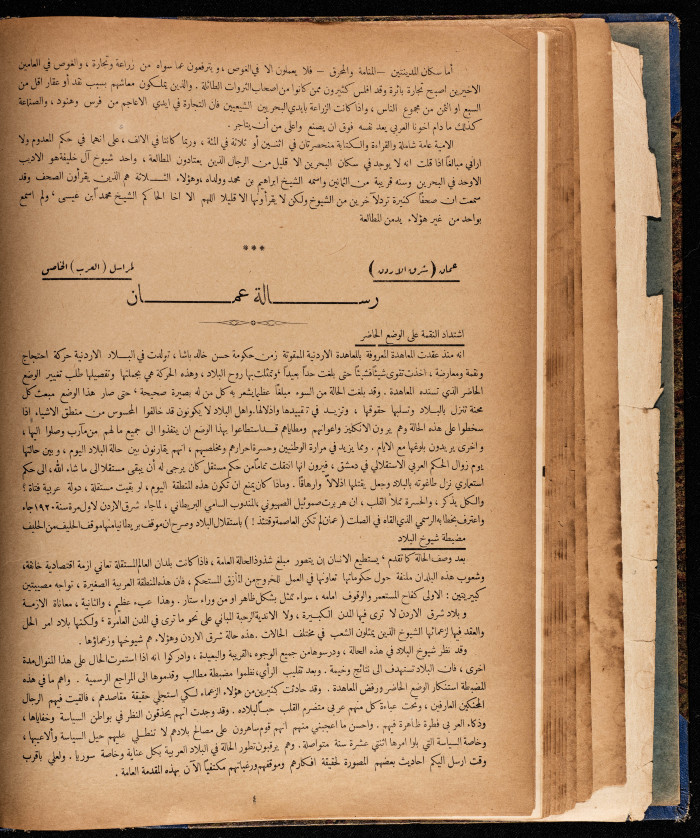 أما سكان المدينتين — المنامة والمحرق — فلا يعملون الا في الغوص ، ويترفعون عما سواه من زراعة وتجارة ، والغوص في العامين
الاخيرين اصبح تجارة بائرة وقد افلس كثيرون ممن كانوا من اصحاب الثروات الطائلة . والذين يملكون معاشهم بسبب نقد أو عقار اقل من
السبع او الثمن من مجموع الناس ، واذا كانت الزراعة بايدي البحريين الشيعيين فان التجارة في ايدي الاعاجم من فرس وهنود ، والصناعة
كذلك ما دام اخونا العربي يعد نفسه فوق ان يصنع واعلى من أن يتاجر .
الامية عامة شاملة والقراءة والكتابة منحصرتان في اثنين أو ثلاثة في المئة ، وربما كانتا في الالف ، على انهما في حكم المعدوم ولا
اراني مبالغاً اذا قلت انه لا يوجد في سكان البحرين الا قليل من الرجال الذين يعتادون المطالعة ، واحد شيوخ آل خليفة هو الاديب
الاوحد في البحرين وسنه قريبة من الثمانين واسمه الشيخ ابراهيم بن محمد وولداه ، وهؤلاء الثلاثة هم الذين يقرأون الصحف وقد
سمعت ان صحفاً كثيرة ترد لآخرين من الشيوخ ولكن لا يقرأونها الا قليلا اللهم الا اخا الحاكم الشيخ محمد ابن عيسى ، ولم اسمع
بواحد من غير هؤلاء يدمن المطالعة
***
عمان ( شرق الاردن )
لمراسل ( العرب ) الخاص
رسالة عمان
اشتداد النقمة على الوضع الحاضر
انه منذ عقدت المعاهدة المعروفة بالمعاهدة الاردنية الممقوتة زمن حكومة حسن خالد باشا ، تولدت في البلاد الاردنية حركة احتجاج
ونقمة ومعارضة ، اخذت تقوى شيئاً فشيئاً حتى بلغت حداً بعيداً وتمثلت بها روح البلاد ، وهذه الحركة هي بجملتها وتفصيلها طلب تغيير الوضع
الحاضر الذي تسنده المعاهدة . وقد بلغت الحالة من السوء مبلغاً عظيما يشعر به كل من له بصيرة صحيحة ، حتى صار هذا الوضع مبعث كل
محنة تنزل بالبلاد وتسلبها حقوقها ، وتزيد في تقييدها واذلالها . واهل البلاد لا يكونون قد خالفوا المحسوس من منطق الاشياء إذا
سخطوا على هذه الحالة وهم يرون الانكليز واعوانهم ومطاياهم قد استطاعوا بهذا الوضع ان ينفذوا الى جميع ما لهم من مآرب وصلوا اليها ،
واخرى يريدون بلوغها مع الايام . ومما يزيد في مرارة الوطنيين وحسرة احرارهم ومخلصيهم ، انهم يقارنون بين حالة البلاد اليوم ، وبين حالتها
يوم زوال الحكم العربي الاستقلالي في دمشق ، فيرون انها انتقلت تماماً من حكم مستقل كان يرجى له أن يبقى مستقلا الى ما شاء الله ، الى حكم
استعماري نزل طاغوته بالبلاد وجعل يقتلها اذلالاً وارهاقاً . وماذا كان يمنع ان تكون هذه المنطقة اليوم ، لو بقيت مستقلة ، دولة عربية فتاة ؟
والكل يذكر ، والحسرة تملأ القلب ، ان هربرت صموئيل الصهيوني ، المندوب السامي البريطاني ، لما جاء شرق الاردن لاول مرة سنة ١٩٢٠ جاء
واعترف بخطابه الرسمي الذي القاه في الصلت ( عمان لم تكن العاصمة وقتئذ ! ) باستقلال البلاد وصرح ان موقف بريطانيا منها موقف الحليف من الحليف
مضبطة شيوخ البلاد
بعد وصف الحالة كما تقدم ، يستطيع الانسان إن يتصور مبلغ شذوذ الحالة العامة ، فاذا كانت بلدان العالم المستقلة تعاني ازمة اقتصادية خانقة ،
وشعوب هذه البلدان ملتفة حول حكوماتها تعاونها في العمل للخروج من المأزق المستحكم ، فان هذه المنطقة العربية الصغيرة ، تواجه مصيبتين
كبيرتين : الاولى كفاح المستعمر والوقوف امامه ، سواء تمثل بشكل ظاهر او من وراء ستار . وهذا عبء عظيم ، والثانية ، معاناة الازمة
وبلاد شرق الاردن لا ترى فيها المدن الكبيرة ، ولا الاندية الرحبة المباني على نحو ما ترى في المدن العامرة ، ولكنها بلاد امر الحل
والعقد فيها لزعمائها الشيوخ الذين يمثلون الشعب في مختلف الحالات . هذه حالة شرق الاردن وهؤلاء هم شيوخها وزعماؤها .
وقد نظر شيوخ البلاد في هذه الحالة ، ودرسوها من جميع الوجوه ، القريبة والبعيدة ، وادركوا انه اذا استمرت الحال على هذا المنوال مدة
اخرى ، فان البلاد تستهدف الى نتائج وخيمة . وبعد تقليب الرأي ، نظموا مضبطة مطالب وقدموها الى المراجع الرسمية . واهم ما في هذه
المضبطة استنكار الوضع الحاضر ورفض المعاهدة . وقد حادثت كثيرين من هؤلاء الزعماء لكي استجلي حقيقة مقاصدهم ، فالفيت فيهم الرجال
المحنكين العارفين ، وتحت عباءة كل منهم عربي متضرم القلب حباً لبلاده . وقد وجدت انهم يحذقون النظر في بواطن السياسة وخفاياها ،
وذكاء العربي فطرة ظاهرة فيهم . واحسن ما اعجبني منهم انهم قوم ساهرون على مصالح بلادهم لا تنطلي عليهم حيل السياسة والاعيبها ،
وخاصة السياسة التي بلوا امرها اثنتي عشرة سنة متواصلة . وهم يرقبون تطور الحالة في البلاد العربية بكل عناية وخاصة سوريا . ولعلي باقرب
وقت ارسل اليكم احاديث بعضهم المصورة لحقيقة افكارهم وموقفهم ورغباتهم مكتفياً الآن بهذه المقدمة العامة .